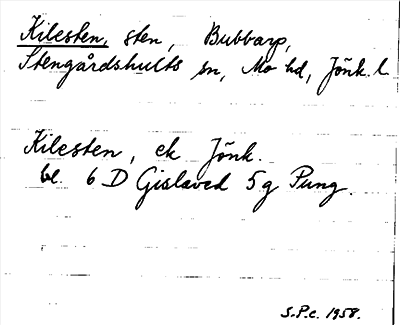 Kilesten, sten, Bubbarp,
Stengårdshults sn, Mo hd, Jönk. l.
Kilesten, ek Jönk.
bl. 6 D Gislaved 5 g Pung.
S.P.c. 1958.